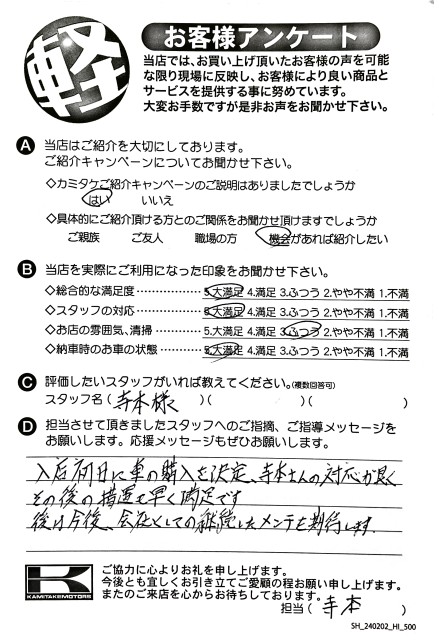 軽
お客様アンケート
当店では、お買い上げ頂いたお客様の声を可能
な限り現場に反映し、お客様により良い商品と
サービスを提供する事に努めています。
大変お手数ですが是非お声をお聞かせ下さい。
A 当店はご紹介を大切にしております。
ご紹介キャンペーンについてお聞かせ下さい。
◇カミタケご紹介キャンペーンのご説明はありましたでしょうか
はい いいえ
◇具体的にご紹介頂ける方とのご関係をお聞かせ頂けますでしょうか
ご親族 ご友人 職場の方 機会があれば紹介したい
B 当店を実際にご利用になった印象をお聞かせ下さい。
◇総合的な満足度 5.大満足 4.満足 3.ふつう 2.やや不満 1.不満
◇スタッフの対応 5.大満足 4.満足 3.ふつう 2.やや不満 1.不満
◇お店の雰囲気、清掃 5.大満足 4.満足 3.ふつう 2.やや不満 1.不満
◇納車時のお車の状態 5.大満足 4.満足 3.ふつう 2.やや不満 1.不満
C 評価したいスタッフがいれば教えてください。(複数回答可)
スタッフ名(寺本様)( )( )
D 担当させて頂きましたスタッフへのご指摘、ご指導メッセージを
お願いします。応援メッセージもぜひお願いします。
入店初日に車の購入を決定、寺本さんの対応が良く
その後の措置も早く満足です
後は今後、会社としての継続したメンテを期待します。
KAMITAKEMOTORS
ご協力に心よりお礼を申し上げます。
今後とも宜しくお引き立てご愛顧の程お願い申し上げます。
またのご来店を心からお待ちしております。
担当(寺本)
SH_240202_HI_500